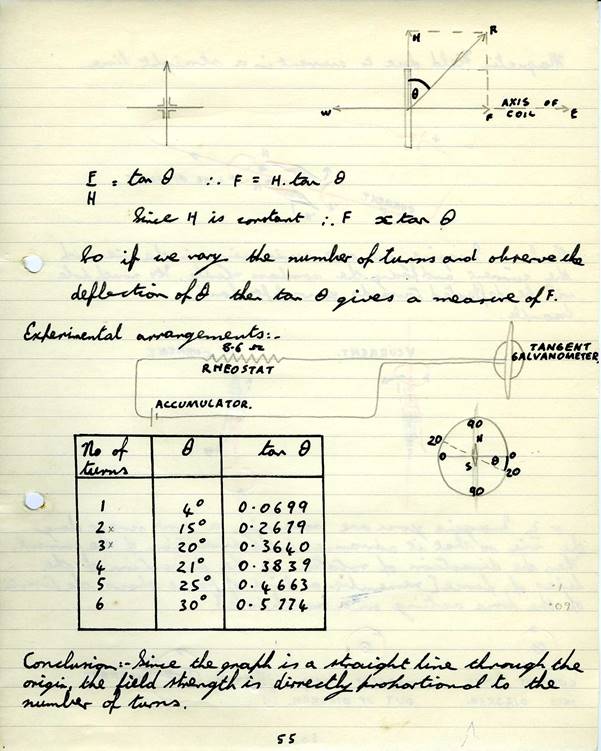 H R
θ
W F AXIS OF COIL E
F/H = tan θ ∴ F = H. tan θ
Since H is constant ∴ F ∝ tan θ
So if we vary the number of turns and observe the
deflection of θ then tan θ gives a measure of F.
Experimental arrangements:-
8.6 Ω
RHEOSTAT
TANGENT
GALVANOMETER
ACCUMULATOR.
90
20 N
0 θ 0
S 20
90
No of turns θ tan θ
1 4° 0.0699
2× 15° 0.2679
3× 20° 0.3640
4 21° 0.3839
5 25° 0.4663
6 30° 0.5774
.1
.09
Conclusion:- Since the graph is a straight line through the
origin, the field strength is directly proportional to the
number of turns.
55